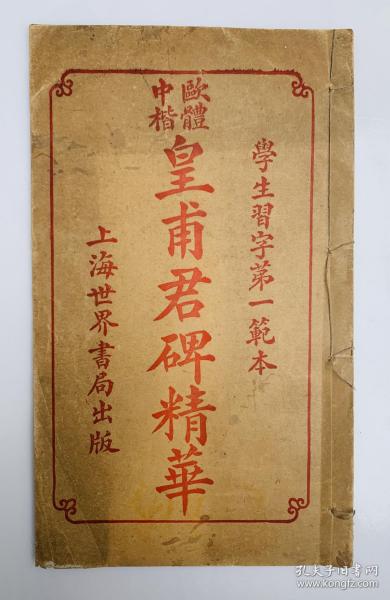 學生習字第一範本
歐體
中楷
皇甫君碑精華
上海世界書局出版
孔夫子旧书网
www.kongfz.com